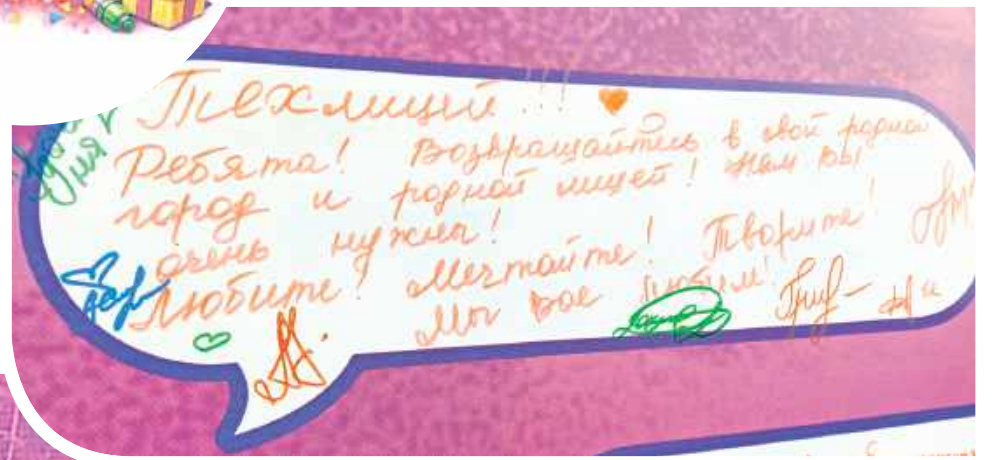 Техлицей!!!
Ребята! Возвращайтесь в свой родной
город и родной лицей! Нам вы
очень нужны!
Любите! Мечтайте! Творите!
Мы вас любим!